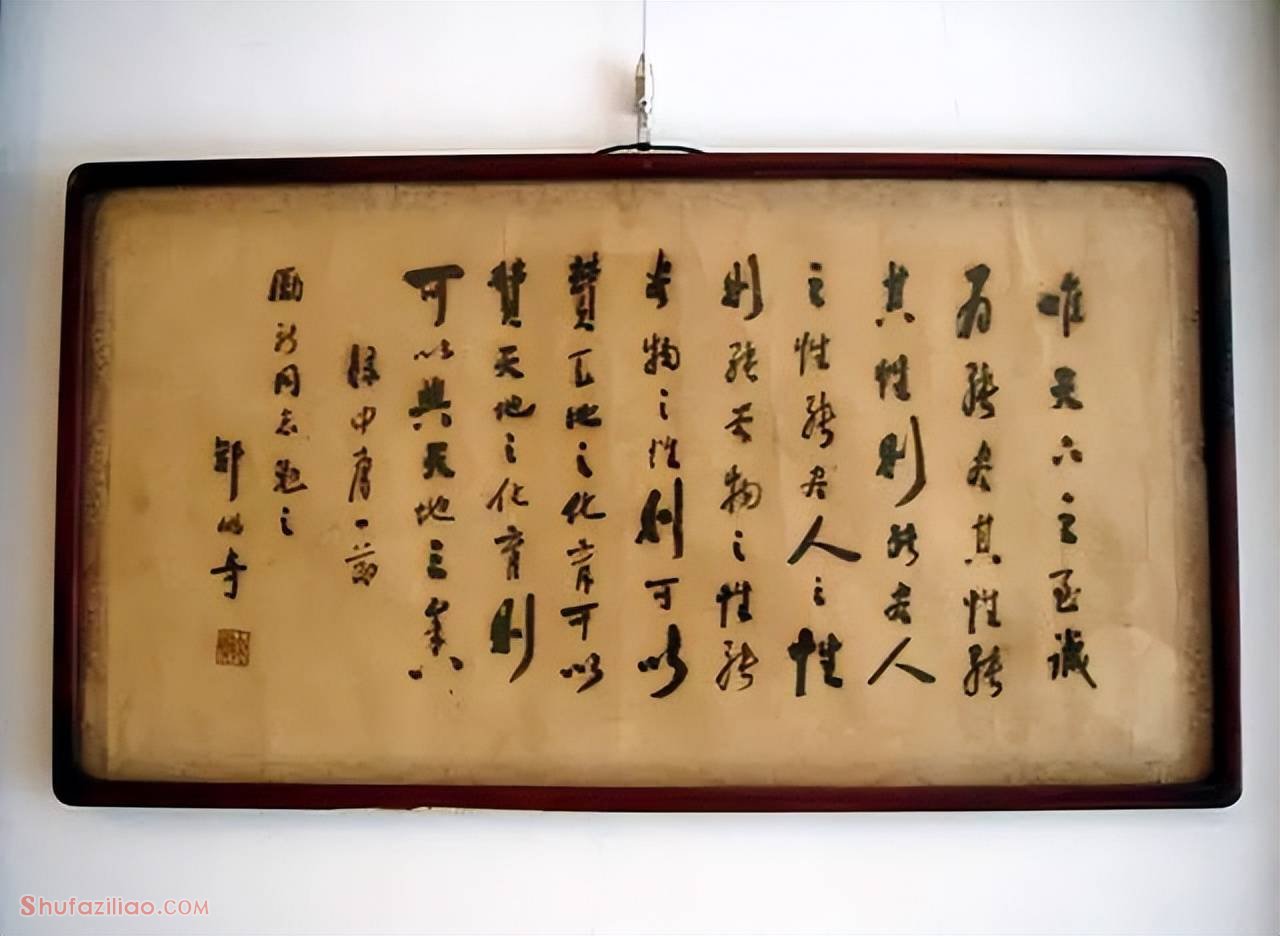 唯天下之至誠
为能尽其性能
尽其性則能尽人
之性能尽人之性
則能尽物之性能
尽物之性則可以
贊天地之化育可以
贊天地之化育則
可以與天地參
錄中庸一節
同志勉之
Shufaziliao.COM